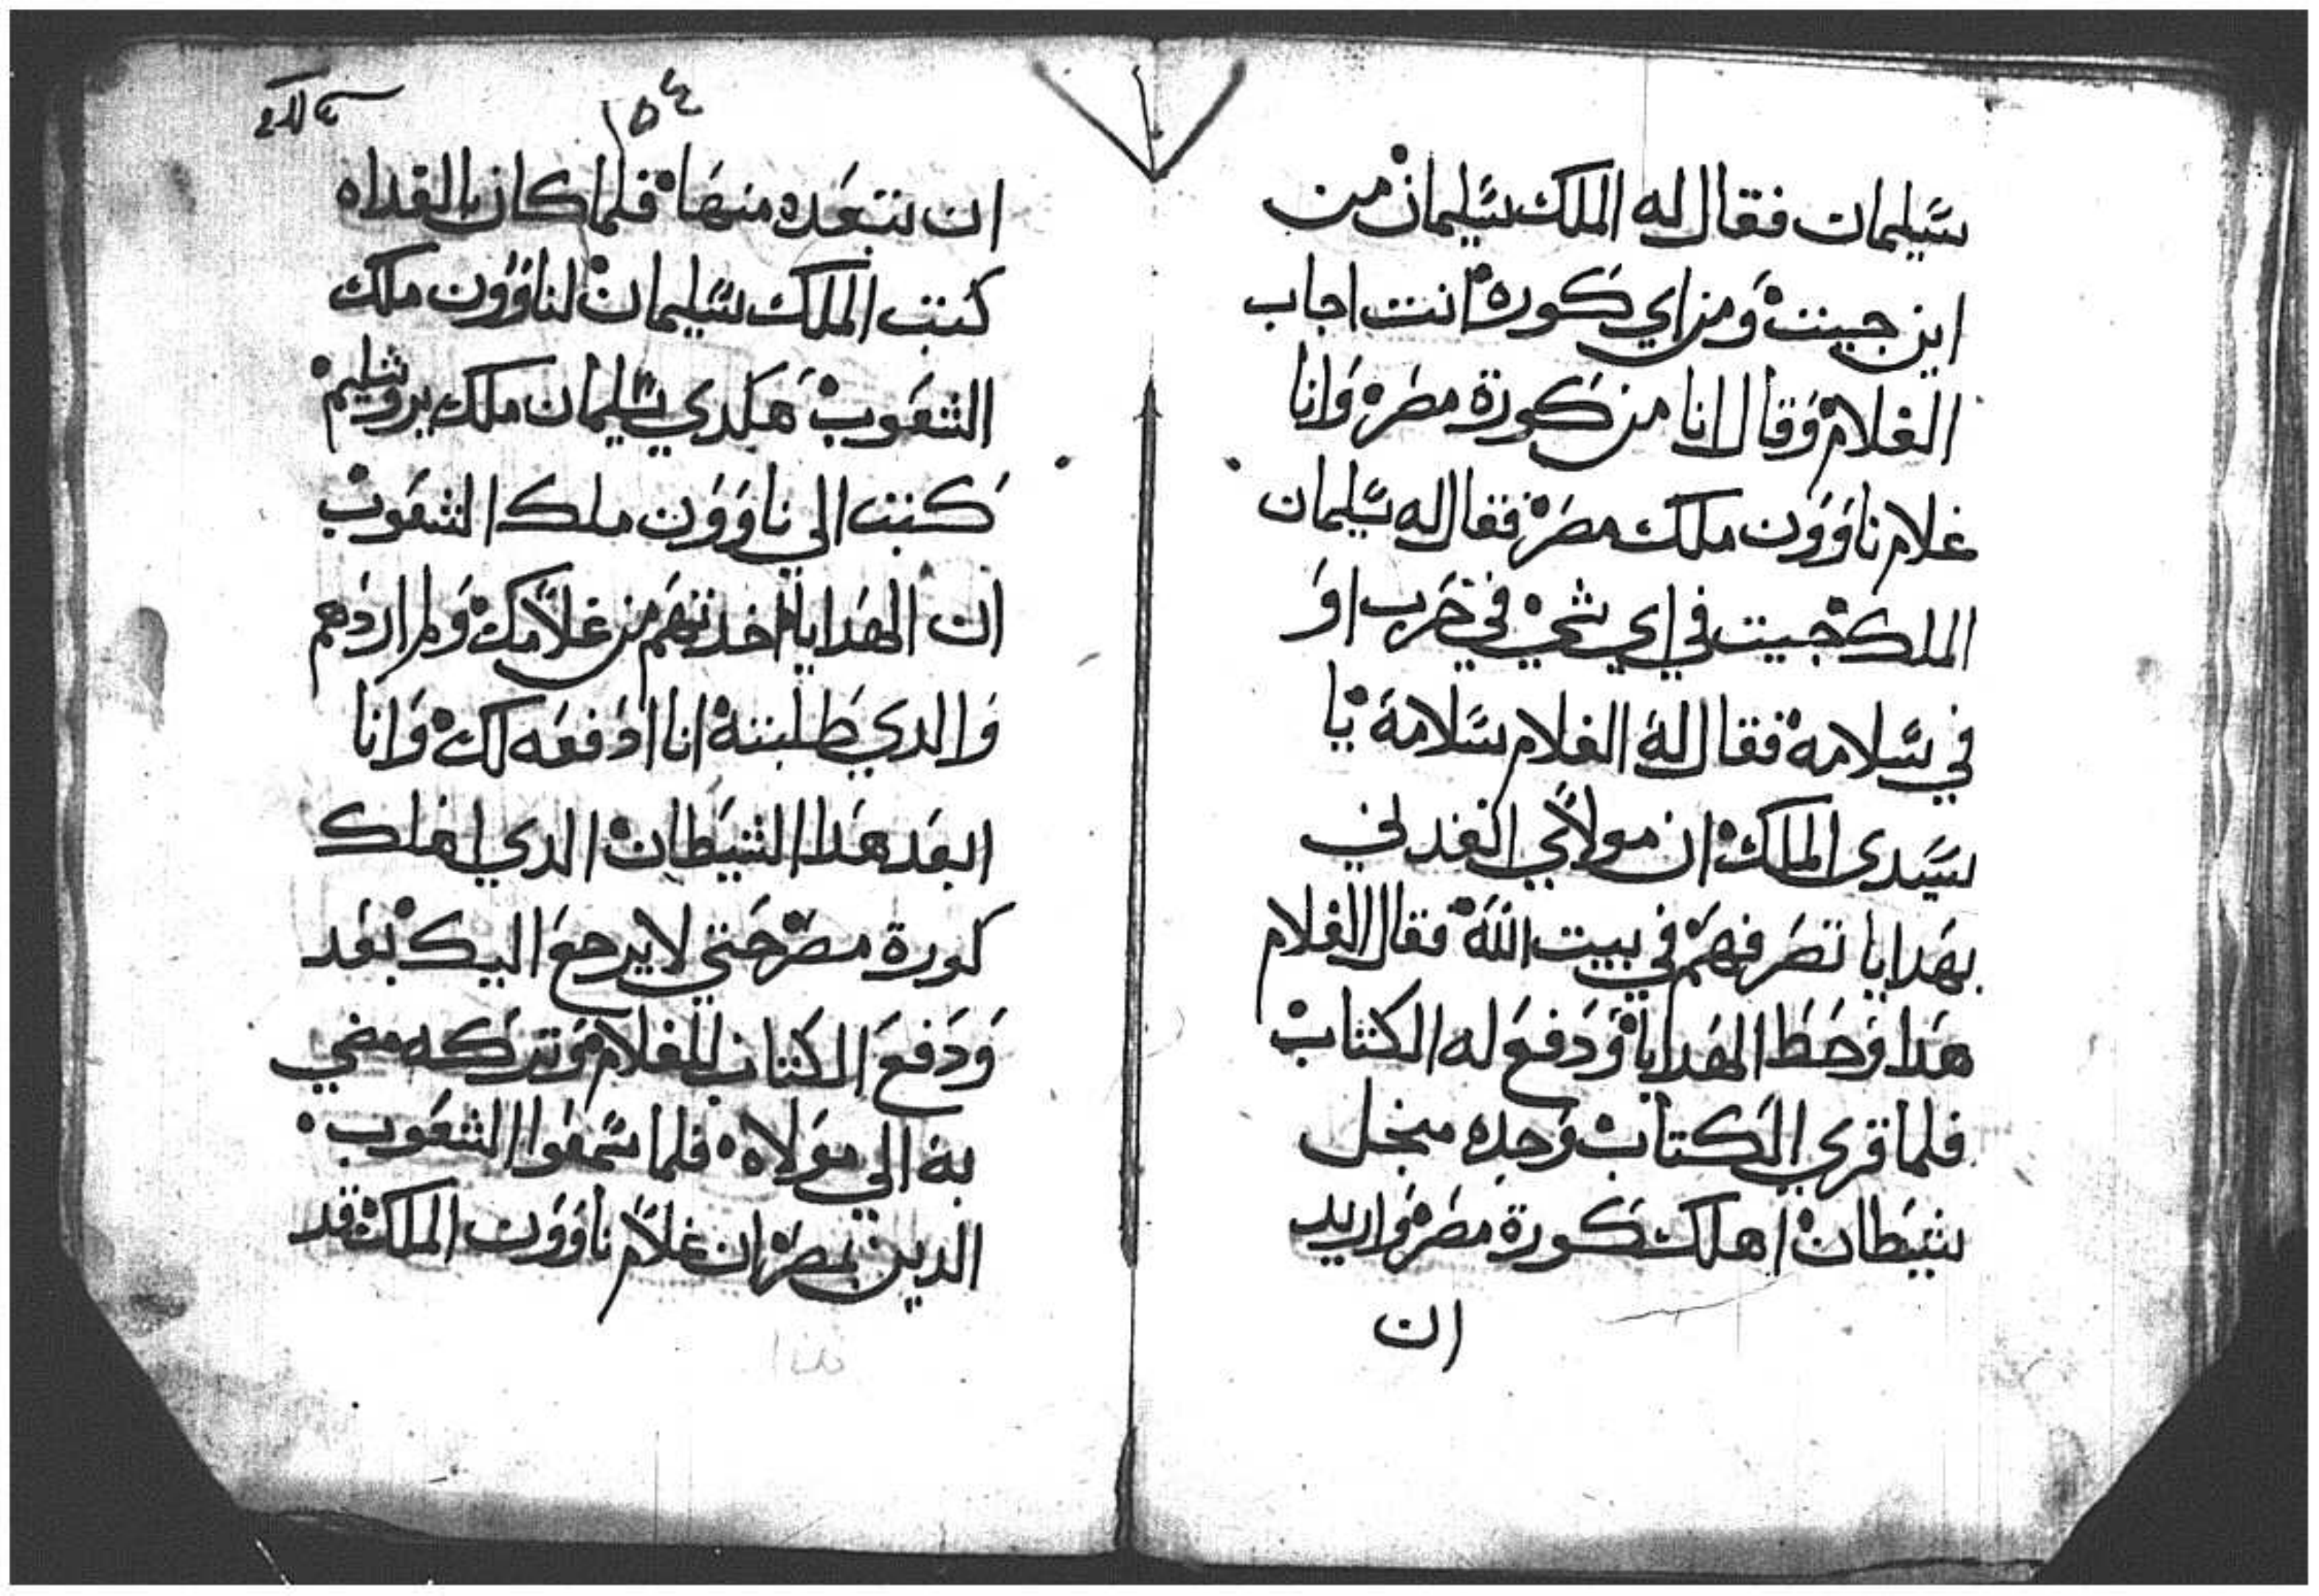 سليمان فقال له الملك سليمان من
اين جيت ومن اي كوره انت اجاب
الغلام وقال انا من كورة مصر وانا
غلام ناوون ملك مصر فقال له سليمان
الملك جيت في اي شي في حرب او
في سلامه فقال له الغلام سلامة يا
سيدى الملك ان مولاي انفدني
بهدايا تصرفهم في بيت الله فقال الغلام
هدا وحط الهدايا ودفع له الكتاب
فلما قري الكتاب وجده منجل
شيطان اهلك كورة مصر واريد
ان
١٥٤
ان تبعده منها فلما كان بالغداه
كتب الملك سليمان لناوون ملك
الشعوب هكدي سليمان ملك يروشليم
كتب الي ناوون ملك الشعوب
ان الهدايا اخدتهم من غلامك ولم اردهم
والدي طلبته انا ادفعه لك وانا
ابعد هدا الشيطان الدي اهلك
كورة مصر حتي لا يرجع اليك بعد
ودفع الكتاب للغلام وتركه مضي
به الي مولاه فلما سمعوا الشعوب
الدين بمصر ان غلام ناوون الملك قد